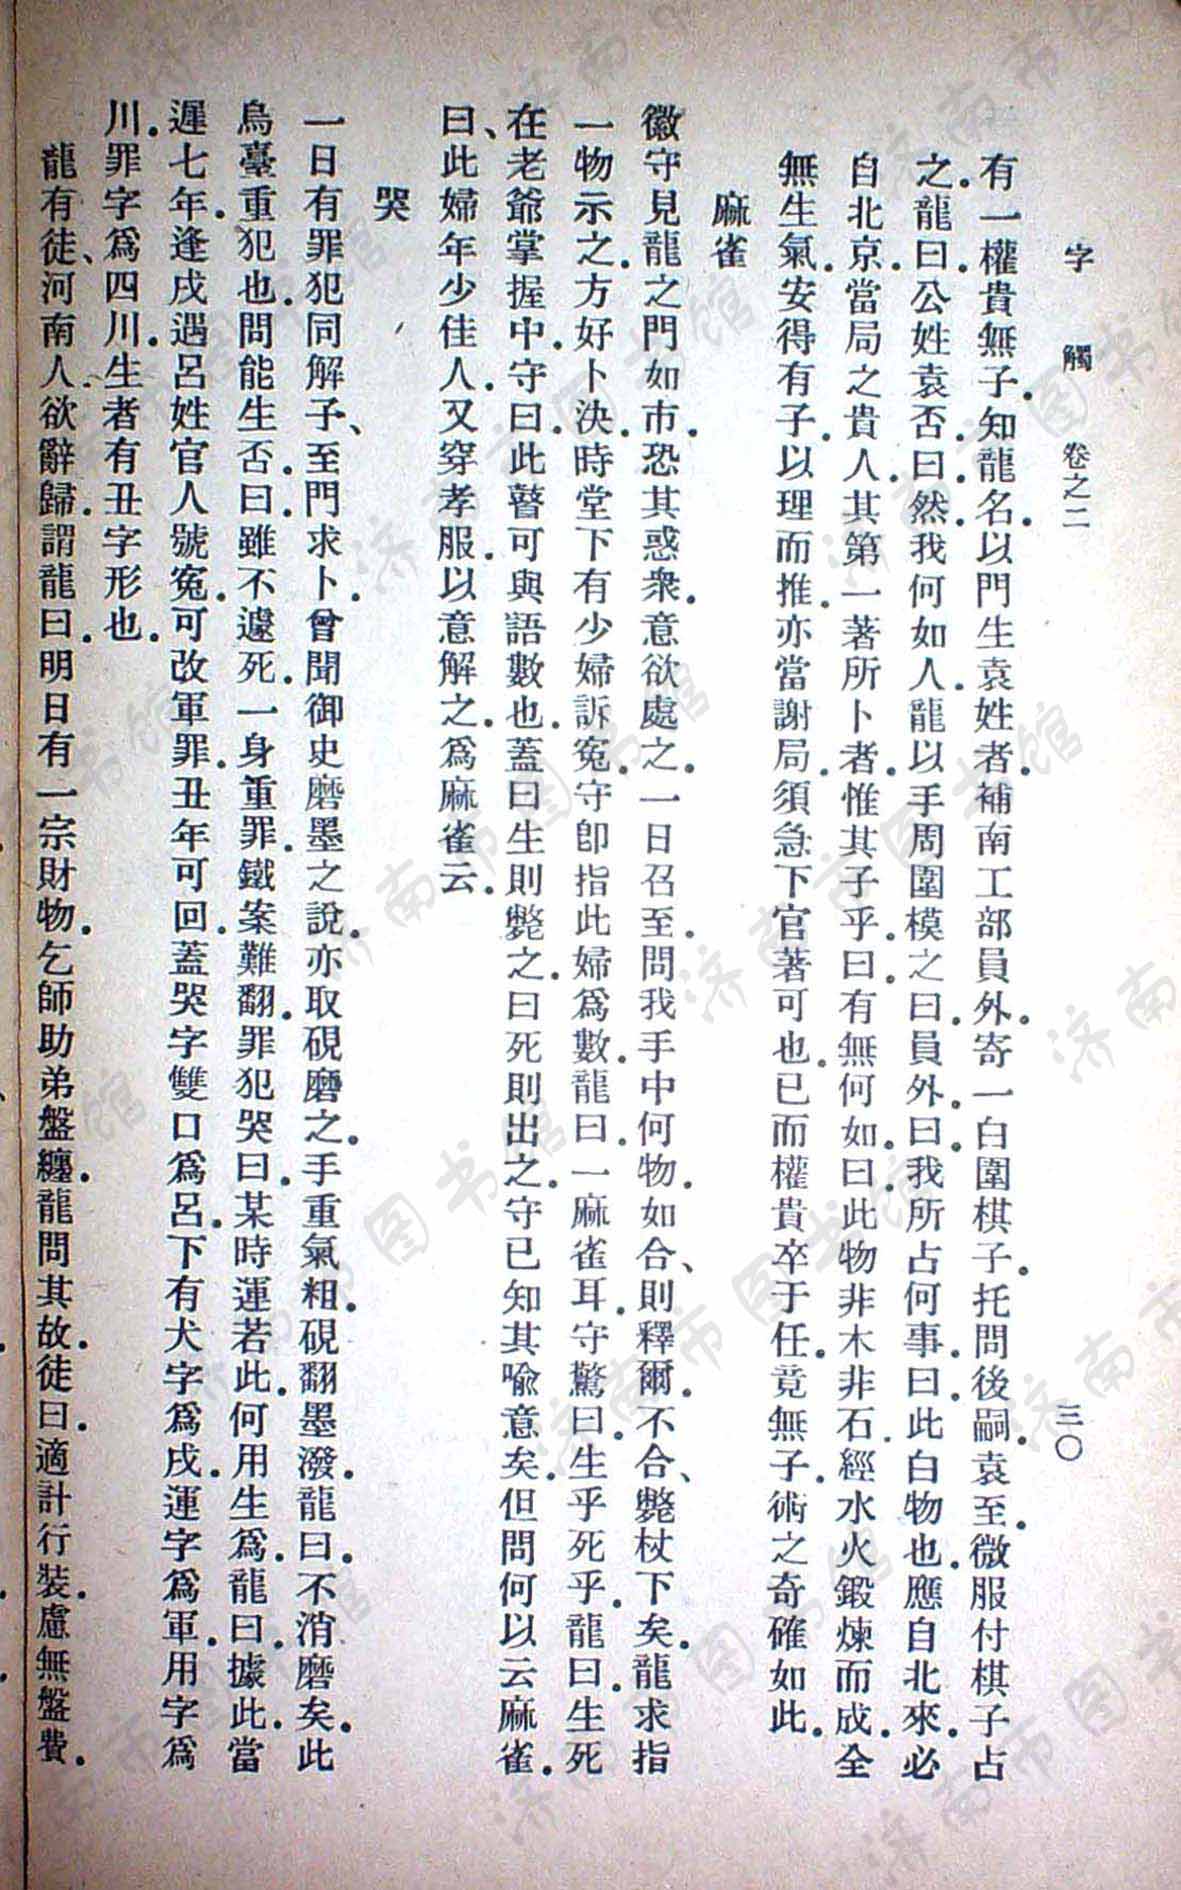 字觸 卷之二 三〇
有一權貴無子．知龍名．以門生袁姓者．補南工部員外．寄一白圍棋子．托問後嗣．袁至．微服付棋子占
之．龍曰．公姓袁否．曰．然．我何如人．龍以手周圍模之曰．員外．曰．我所占何事．曰．此白物也．應自北來．必
自北京．當局之貴人．其第一著所卜者．惟其子乎．曰．有無何如．曰．此物非木非石．經水火鍛煉而成．全
無生氣．安得有子．以理而推．亦當謝局．須急下官著可也．已而權貴卒于任．竟無子．術之奇確如此．
麻雀
徽守見龍之門如市．恐其惑衆．意欲處之．一日召至．問我手中何物．如合、則釋爾．不合、斃杖下矣．龍求指
一物示之．方好卜決．時堂下有少婦訴冤．守卽指此婦爲數．龍曰．一麻雀耳．守驚曰．生乎死乎．龍曰．生死
在老爺掌握中．守曰．此瞽可與語數也．蓋曰生則斃之．曰死則出之．守已知其喻意矣．但問何以云麻雀．
曰、此婦年少佳人．又穿孝服．以意解之．爲麻雀云．
哭
一日有罪犯同解子、至門求卜．曾聞御史磨墨之說．亦取硯磨之．手重氣粗．硯翻墨潑．龍曰．不消磨矣．此
烏臺重犯也．問能生否．曰．雖不遽死．一身重罪．鐵案難翻．罪犯哭曰．某時運若此．何用生爲．龍曰．據此．當
遲七年．逢戌遇呂姓官人號冤．可改軍罪．丑年可回．蓋哭字雙口爲呂．下有犬字爲戌．運字爲軍．用字爲
川．罪字爲四川．生者有丑字形也．
龍有徒、河南人．欲辭歸．謂龍曰．明日有一宗財物．乞師助弟盤纏．龍問其故．徒曰．適計行裝．慮無盤費．
济南市图书馆